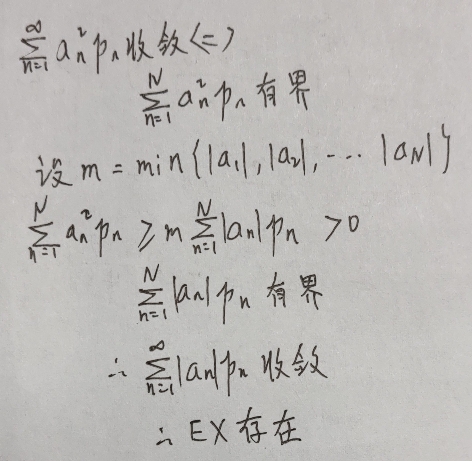 ∑_{n=1}^{∞} a_n^2 p_n 收敛 <=>
∑_{n=1}^{N} a_n^2 p_n 有界
设 m = min{|a_1|, |a_2|, ... |a_N|}
∑_{n=1}^{N} a_n^2 p_n ≥ m ∑_{n=1}^{N} |a_n| p_n > 0
∑_{n=1}^{N} |a_n| p_n 有界
∴ ∑_{n=1}^{∞} |a_n| p_n 收敛
∴ EX 存在